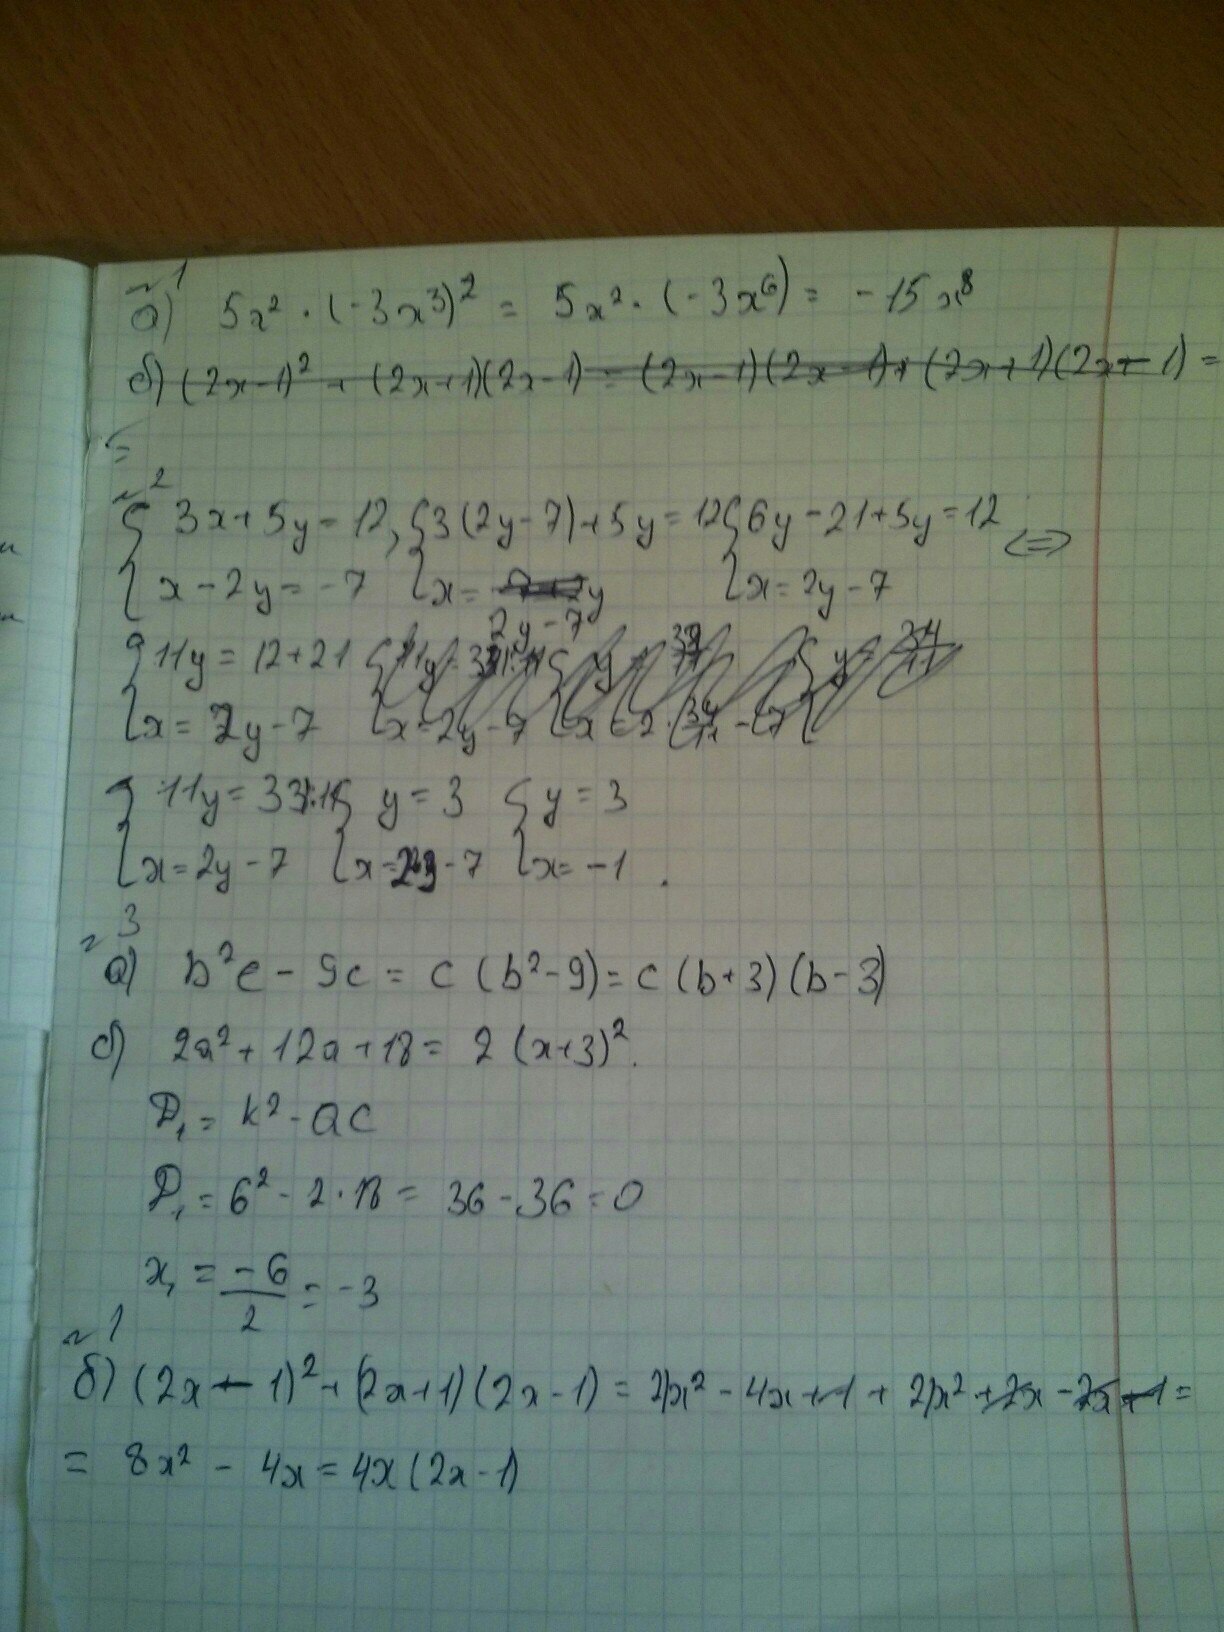 №1
а) 5x² · (-3x³)² = 5x² · (-3x⁶) = -15x⁸
б) (2x-1)² + (2x+1)(2x-1) = (2x-1)(2x-1) + (2x+1)(2x-1) =
=
№2
{ 3x+5y=12, { 3(2y-7)+5y=12 { 6y-21+5y=12 <=>
{ x-2y=-7 { x= 2y-7 { x=2y-7
{ 11y=12+21
{ x=2y-7
{ 11y=33|:11 { y=3 { y=3
{ x=2y-7 { x=2·3-7 { x=-1.
№3
а) b²c - 9c = c(b²-9) = c(b+3)(b-3)
б) 2a²+12a+18 = 2(x+3)².
D₁ = k² - ac
D₁ = 6² - 2·18 = 36-36=0
x₁ = -6/2 = -3
№1
б) (2x-1)² + (2x+1)(2x-1) = 4x² - 4x+1 + 4x² +2x -2x -1 =
= 8x² - 4x = 4x(2x-1)